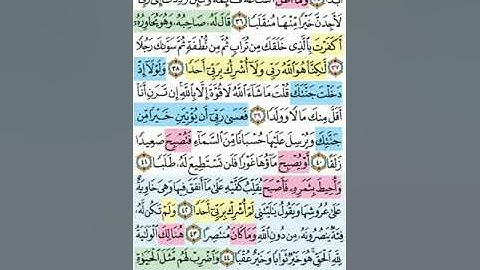 أَبَدًا ٣٥ وَمَآ أَظُنُّ ٱلسَّاعَةَ قَآئِمَةً وَلَئِن رُّدِدتُّ إِلَىٰ رَبِّى
لَأَجِدَنَّ خَيْرًا مِّنْهَا مُنقَلَبًا ٣٦ قَالَ لَهُۥ صَاحِبُهُۥ وَهُوَ يُحَاوِرُهُۥٓ
أَكَفَرْتَ بِٱلَّذِى خَلَقَكَ مِن تُرَابٍ ثُمَّ مِن نُّطْفَةٍ ثُمَّ سَوَّىٰكَ رَجُلًا
٣٧ لَّٰكِنَّا۠ هُوَ ٱللَّهُ رَبِّى وَلَآ أُشْرِكُ بِرَبِّىٓ أَحَدًا ٣٨ وَلَوْلَآ إِذْ
دَخَلْتَ جَنَّتَكَ قُلْتَ مَا شَآءَ ٱللَّهُ لَا قُوَّةَ إِلَّا بِٱللَّهِ إِن تَرَنِ أَنَا۠
أَقَلَّ مِنكَ مَالًا وَوَلَدًا ٣٩ فَعَسَىٰ رَبِّىٓ أَن يُؤْتِيَنِ خَيْرًا مِّن
جَنَّتِكَ وَيُرْسِلَ عَلَيْهَا حُسْبَانًا مِّنَ ٱلسَّمَآءِ فَتُصْبِحَ صَعِيدًا
زَلَقًا ٤٠ أَوْ يُصْبِحَ مَآؤُهَا غَوْرًا فَلَن تَسْتَطِيعَ لَهُۥ طَلَبًا ٤١
وَأُحِيطَ بِثَمَرِهِۦ فَأَصْبَحَ يُقَلِّبُ كَفَّيْهِ عَلَىٰ مَآ أَنفَقَ فِيهَا وَهِىَ خَاوِيَةٌ
عَلَىٰ عُرُوشِهَا وَيَقُولُ يَٰلَيْتَنِى لَمْ أُشْرِكْ بِرَبِّىٓ أَحَدًا ٤٢ وَلَمْ تَكُن لَّهُۥ
فِئَةٌ يَنصُرُونَهُۥ مِن دُونِ ٱللَّهِ وَمَا كَانَ مُنتَصِرًا ٤٣ هُنَالِكَ ٱلْوَلَٰيَةُ
لِلَّهِ ٱلْحَقِّ هُوَ خَيْرٌ ثَوَابًا وَخَيْرٌ عُقْبًا ٤٤ وَٱضْرِبْ لَهُم مَّثَلَ ٱلْحَيَوٰةِ